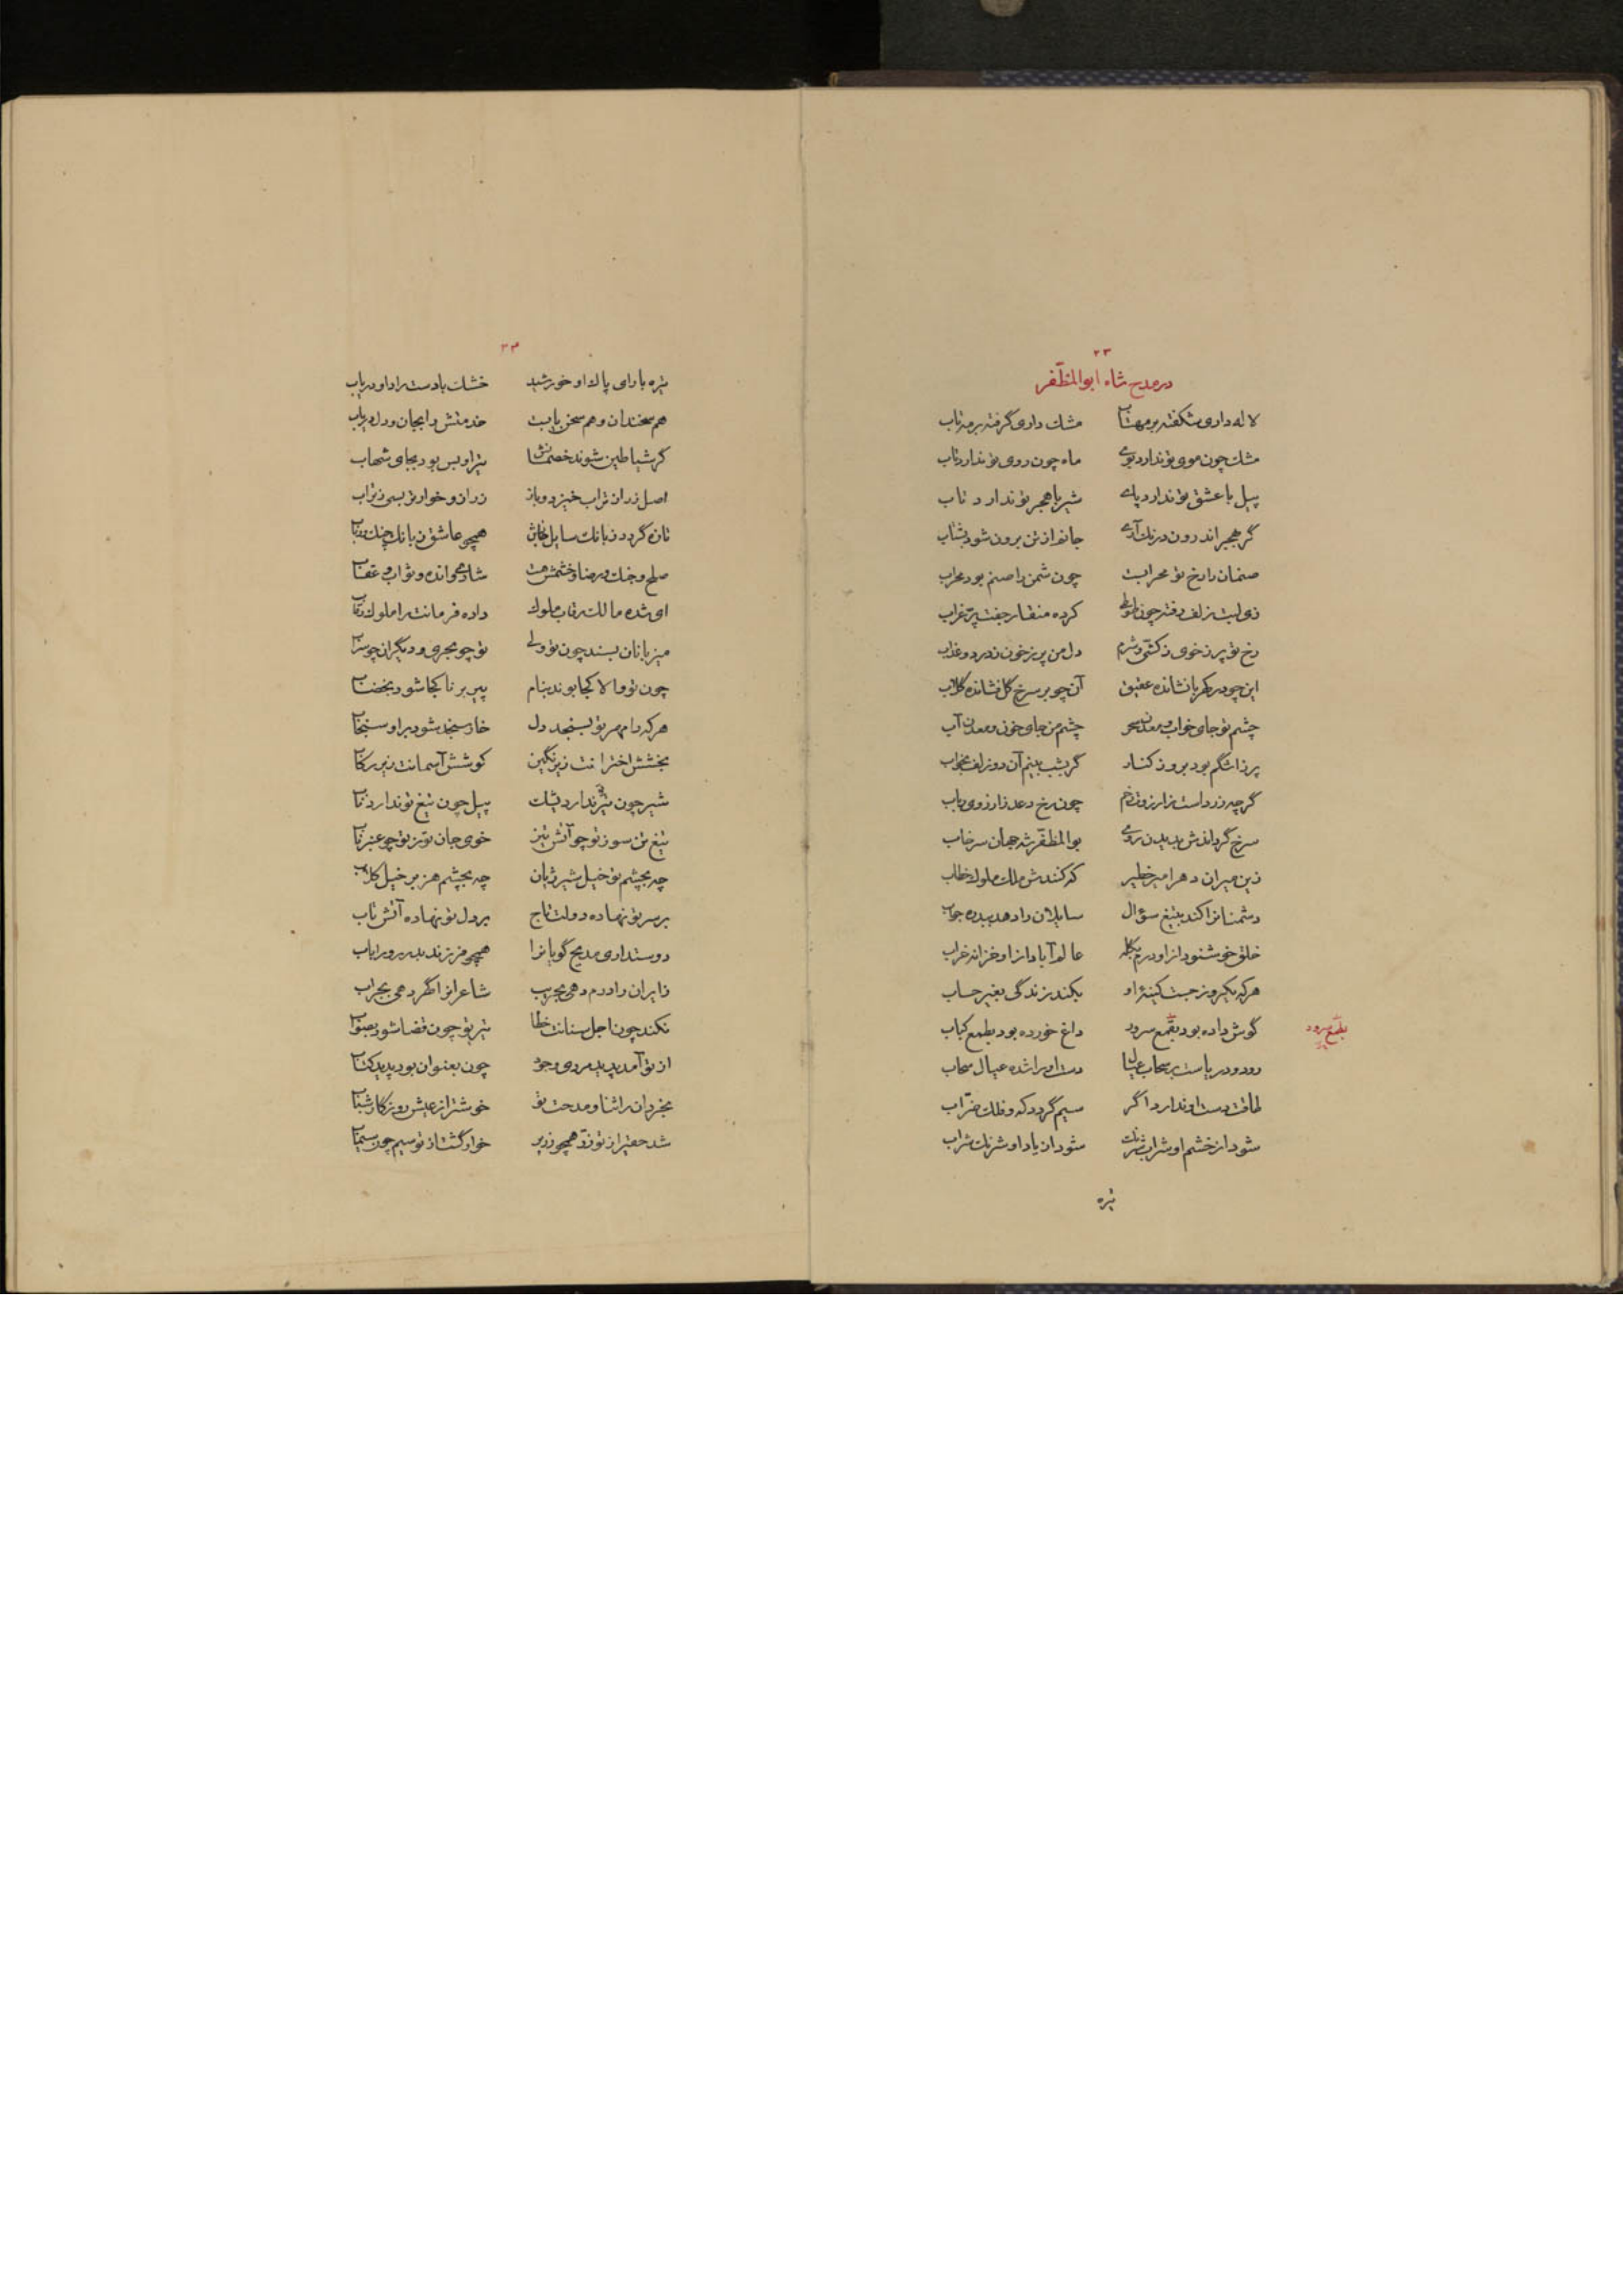 ۲۳
در مدح شاه ابوالمظفّر
لاله داری شکفته بر مهتاب مشک داری گرفته بر مه تاب
مشک چون موی تو ندارد بوی ماه چون روی تو ندارد تاب
پیل با عشق تو ندارد پای شیر با هجر تو ندارد تاب
گر بهجر اندرون درنک آری جانم از تن برون شود بشتاب
صنمان را رخ تو محرابست چون شمن را صنم بود محراب
زی لبت زلف رفته چون طوطی کرده منقار جفت پرّ غراب
رخ تو پر ز خوی ز کشّی و شرم دل من پر ز خون ز درد و عذاب
این چو در کهربا نشانده عقیق آن چو بر سرخ گل فشانده گلاب
چشم تو جای خواب و معدن سحر چشم من جای خون و معدن آب
پر ز اشکم بود بروز کنار گر بشب بینم آن دو زلف بخواب
گرچه زرد است زارزو رخم چون رخ دعد ز ارزوی رباب
سرخ گرداندش بدیدن روی بوالمظفّر شه جهان سرخاب
زین میران دهر امیر خطیر که کنندش ملک ملوک خطاب
دشمنانرا کند بتیغ سؤال سایلان را دهد ببدره جواب
خلق خوشنود از او درم بگله عالم آباد از او خزانه خراب
هرکه یکروز جست کینهٔ او بکند زندگی بغیر حساب
گوش داده بود بقمع سرود داغ خورده بود بطمع کباب
بطمع سرود
رود و دریاست بر سحاب عیال دست او را شده عیال سحاب
طاقت دست او ندارد اگر سیم گردد که و فلک ضرّاب
شود از خشم او شراب شرنک شود از یاد او شرنک شراب
تیره
۲۳
تیره با رای پاک او خورشید خشک با دست راد او دریاب
هم سخندان و هم سخن یابست خدمتش را بجان و دل دریاب
گر شیاطین شوند خصمانش تیر او بس بود بجای شهاب
اصل زر از تراب خیزد و باز زر از و خوارتر بسی ز تراب
تازه گردد ز بانک سایل جانش همچو عاشق ز بانک چنک و رباب
صلح و جنک و رضا و خشمش هست شادی و انده و ثواب و عقاب
ای شده مالک رقاب ملوک داده فرمانت را ملوک رقاب
میزبانان بسند چون تو ولی تو چو بحری و دیگران چو سراب
چون تو والا کجا بوند بنام پیر برنا کجا شود بخضاب
هرکه را مهر تو بسنجد دل خار سنجد شود بر او سنجاب
بخشش اخترانت زیر نگین کوشش آسمانت زیر رکاب
شیر چون تیر تو ندارد نیشک پیل چون تیغ تو ندارد ناب
تیغ تن سوز تو چو آتش تیز خوی جان توز تو چو عنبر ناب
چه بچشم تو خیل شیر ژیان چه بچشم هزبر خیل کلاب
بر سر تو نهاده دولت تاج بر دل تو نهاده آتش تاب
دوستداری مدیح گویانرا همچو فرزند بدرود را باب
زایران را درم دهی بجریب شاعرانرا گهر دهی بجراب
نکند چون اجل سنانت خطا تیر تو چون قضا شود بصواب
از تو آمد پدید مردی و جود چون بعنوان بود پدید کتاب
بخردان را ثنا و مدحت تو خوشتر از عیش روزگار شباب
شد حقیر از تو زرّ همچو زریر خوار گشت از تو سیم چون سیماب